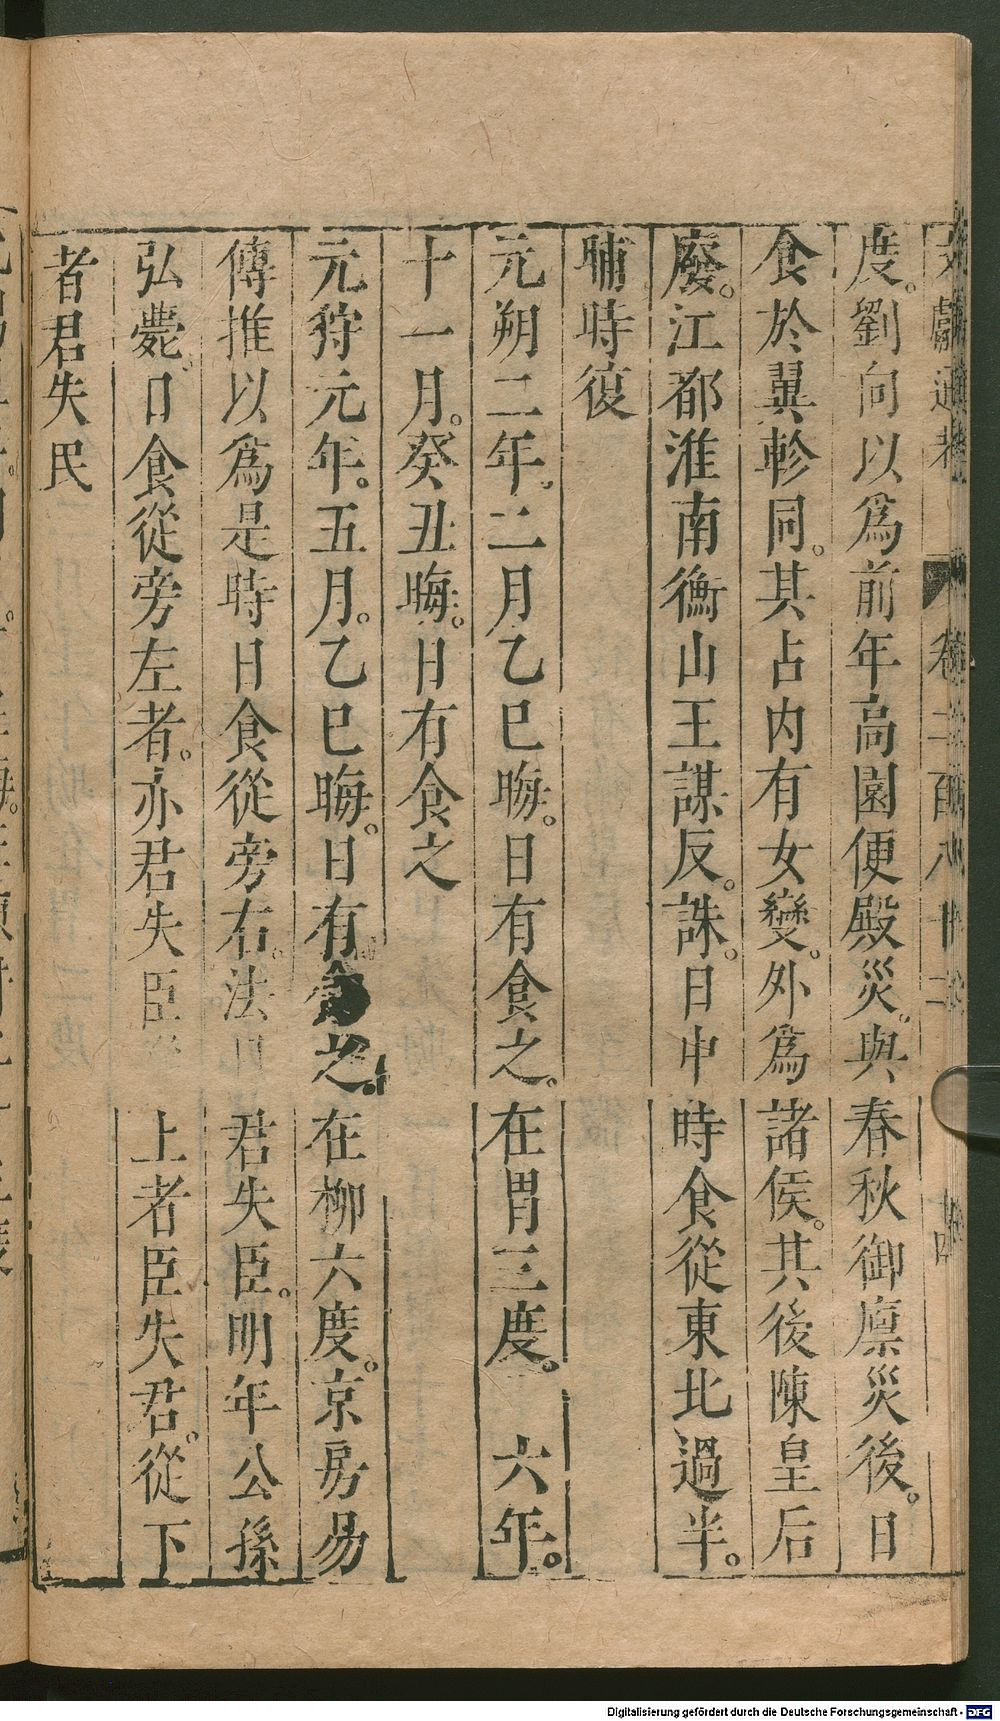 文獻通考 卷二百八十二 十四
度。劉向以爲前年高園便殿災。與春秋御廪災後。日
食於翼軫同。其占内有女變。外爲諸侯。其後陳皇后
廢。江都淮南衡山王謀反。誅。日中時食從東北過半。
晡時復
元朔二年。二月乙巳晦。日有食之。在胃三度。 六年。
十一月。癸丑晦。日有食之
元狩元年。五月。乙巳晦。日有食之。在柳六度。京房易
傳推以爲是時日食從旁右。法曰君失臣。明年公孫
弘薨。日食從旁左者。亦君失臣 上者臣失君。從下
者君失民
Digitalisierung gefördert durch die Deutsche Forschungsgemeinschaft - DFG